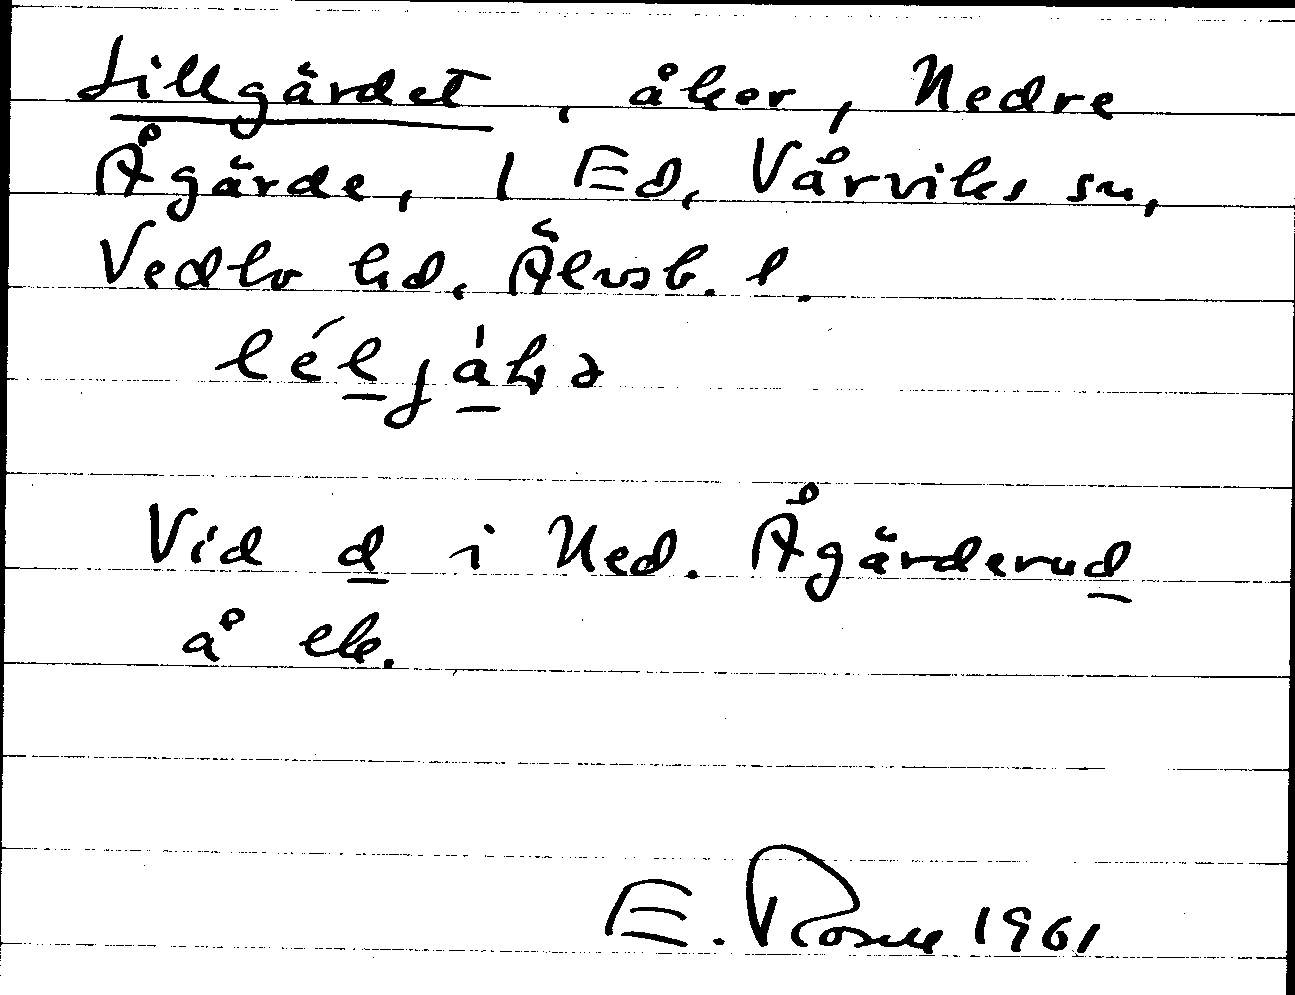 Lillgärdet, åker, Nedre
Ågärde, 1 Ed, Vårviks sn,
Vedbo hd, Älvsb. l.
Vid d i Ned. Ågärderud
å ek.
E. Rosell 1961